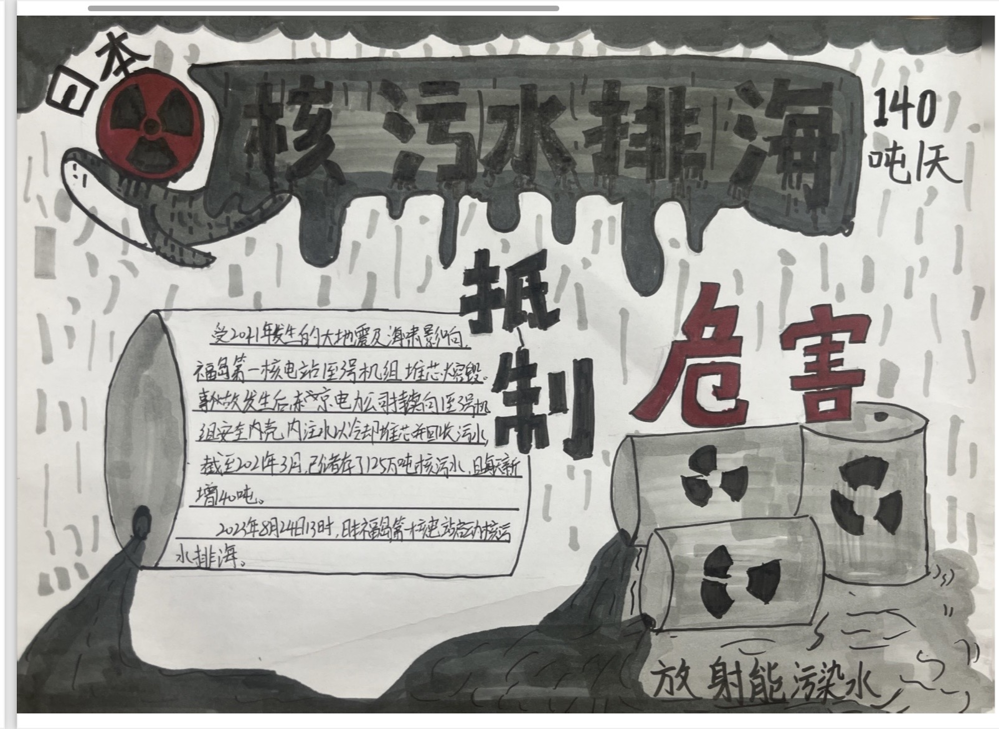 日本
核污水排海
140
吨/天
抵制
危害
受2021年发生的大地震及海啸影响,
福岛第一核电站1至3号机组堆芯熔毁。
事故发生后,东京电力公司持续向1至3号机
组安全内壳内注水以冷却堆芯并回收污水,
截至2021年3月,已储存了125万吨核污水,且每天新
增140吨。
2023年8月24日13时,日本福岛第一核电站启动核污
水排海。
放射能污染水